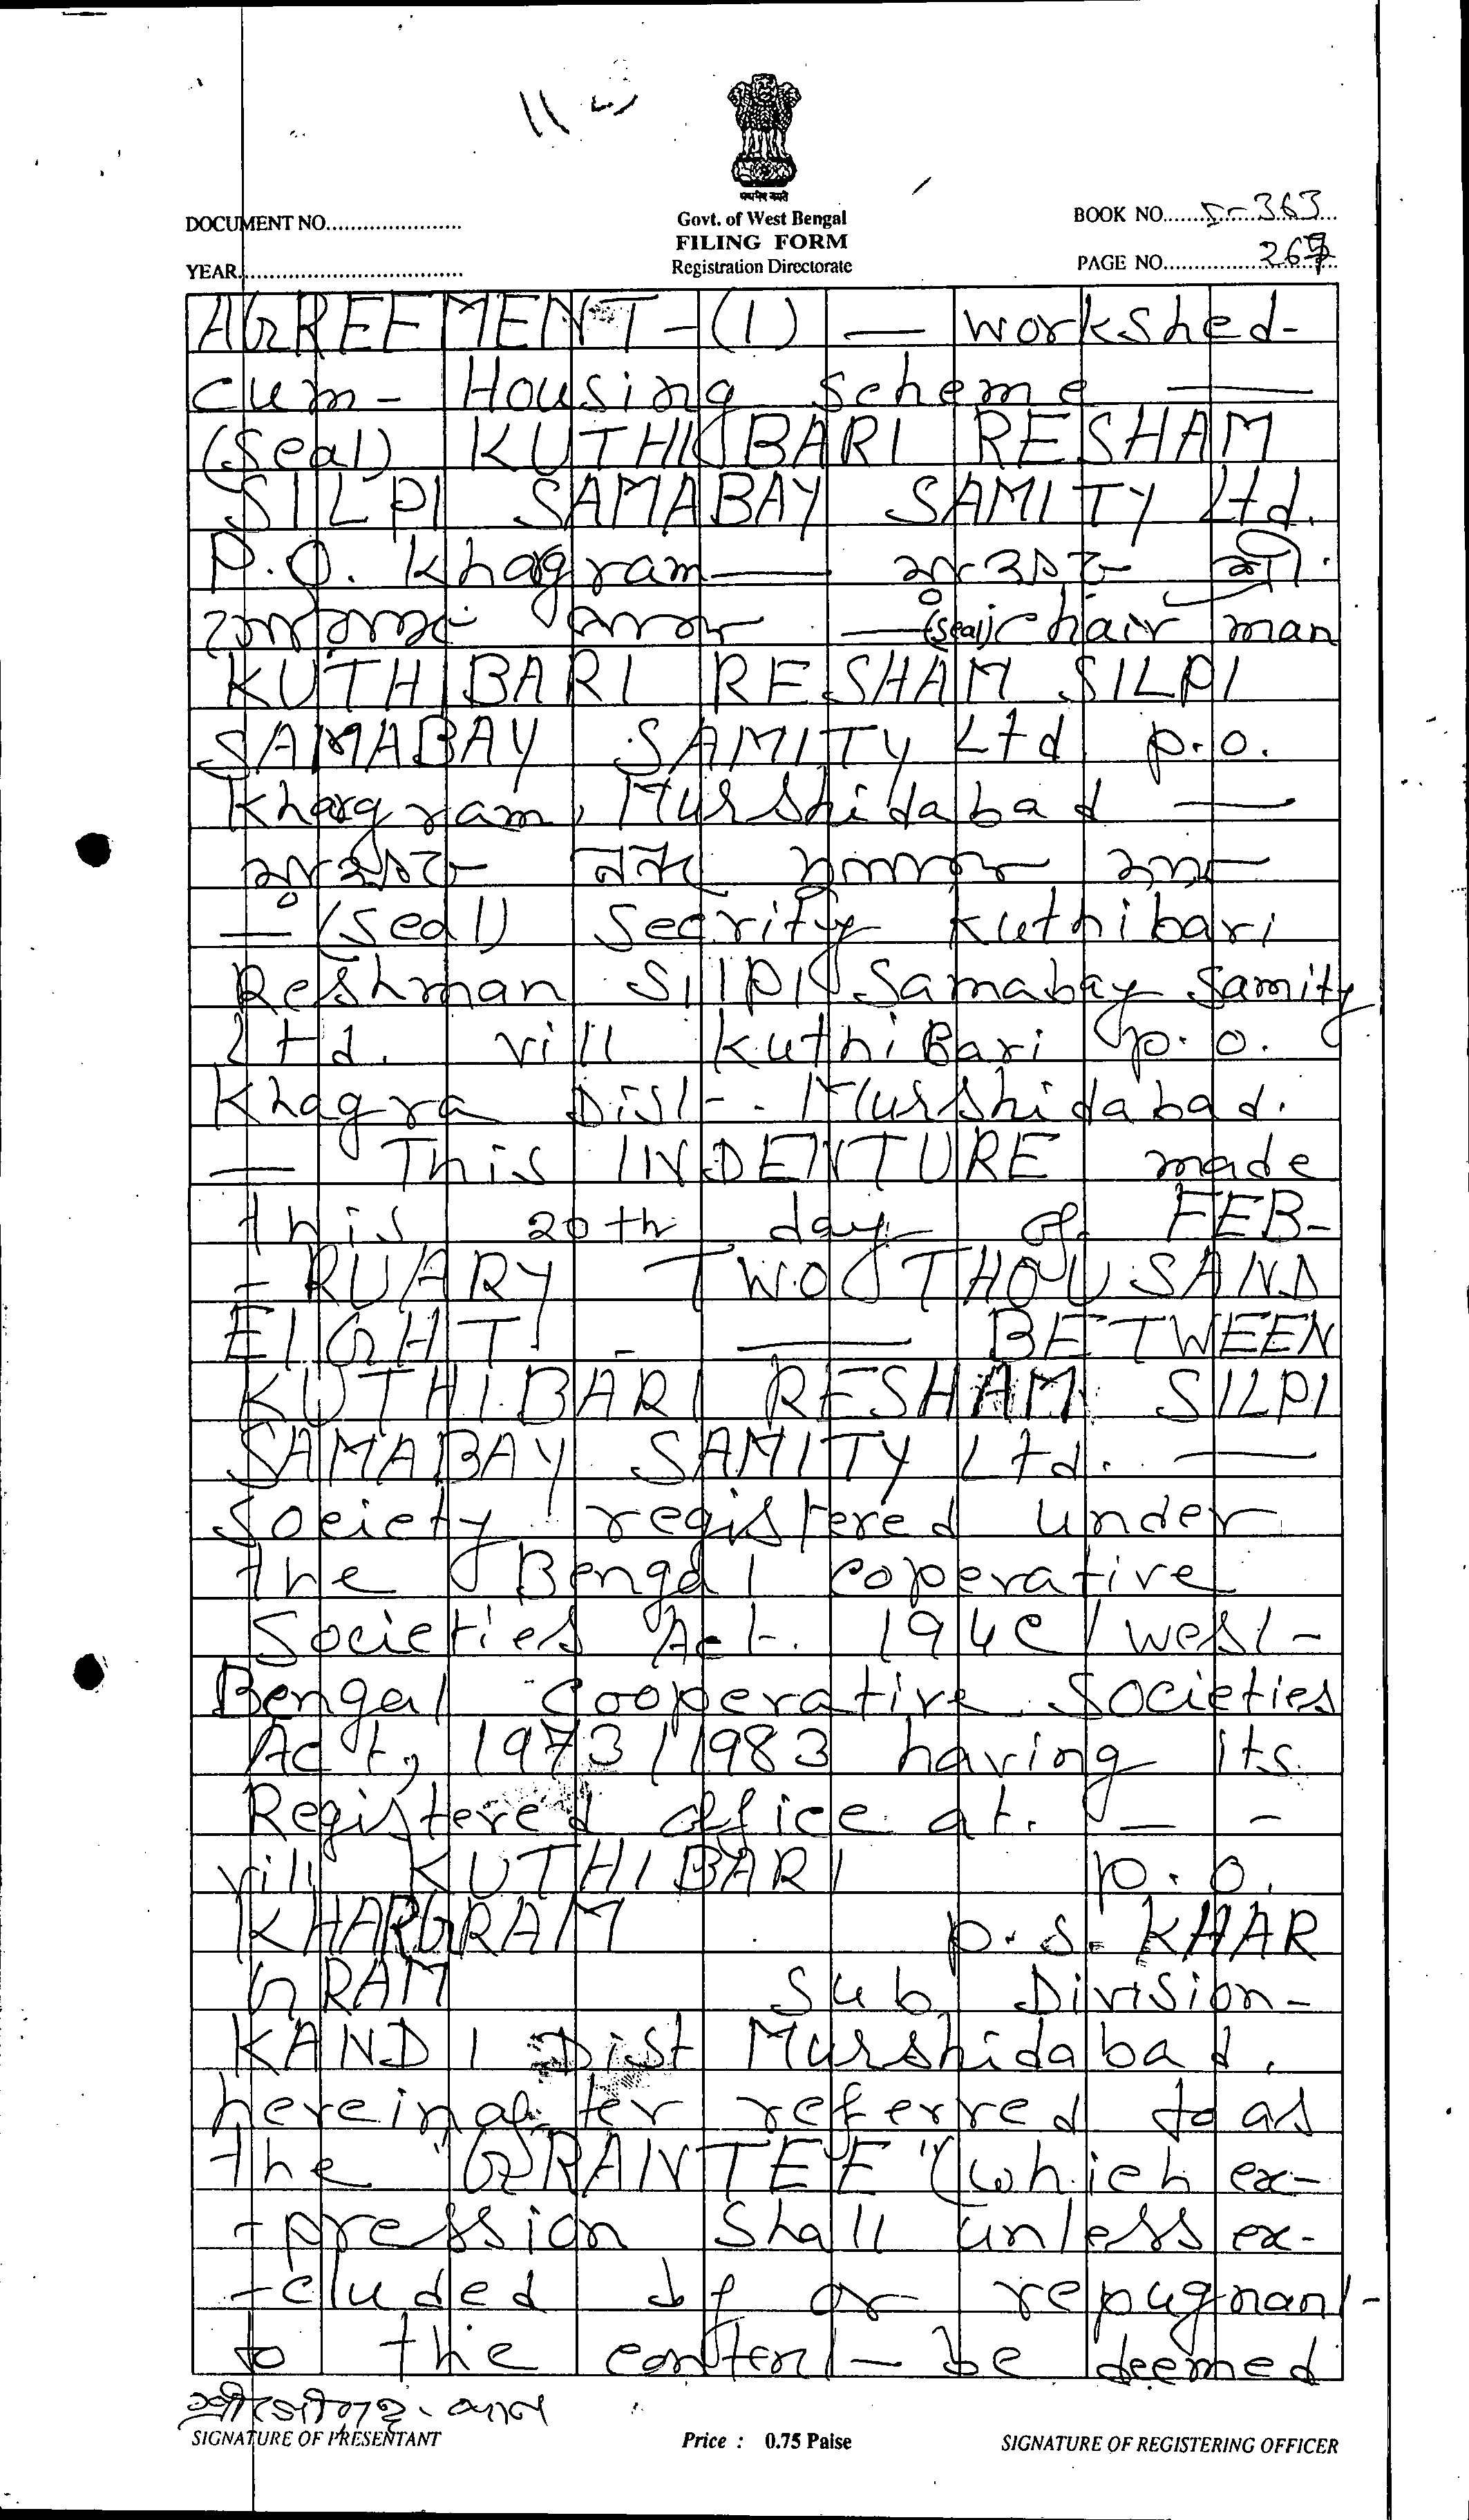 सत्यमेव जयते
Govt. of West Bengal
FILING FORM
Registration Directorate
DOCUMENT NO.
YEAR
BOOK NO. I-363
PAGE NO. 267
AGREEMENT-(1) — workshed-
cum- Housing Scheme —
(Seal) KUTHIBARI RESHAM
SILPI SAMABAY SAMITY Ltd.
P.O. Khagram —
— (seal) chair man
KUTHIBARI RESHAM SILPI
SAMABAY SAMITY Ltd p.o.
Khargram, Murshidabad —
— (seal) Secrity Kuthibari
Reshman SIlPI Samabay Samity
Ltd. vill KuthiBari p.o.
Khagra Dist-. Murshidabad.
— This INDENTURE made
this 20th day of FEB-
-RUARY TWO THOUSAND
EIGHT - — BETWEEN
KUTHIBARI RESHAM SILPI
SAMABAY SAMITY Ltd. —
Society registered under
the Bengal coperative
Societies Act. 194c/West-
Bengal cooperative Societies
Act, 1973/1983 having its
Registered office at. — -
vill KUTHIBARI p.o.
KHARGRAM p.s. KHAR
GRAM Sub Division-
KANDI Dist Murshidabad.
hereinafter referred to as
the "GRANTEE" (which ex-
-pression Shall unless ex-
-cluded by or repugnant-
to the content- be deemed
SIGNATURE OF PRESENTANT
Price : 0.75 Paise
SIGNATURE OF REGISTERING OFFICER